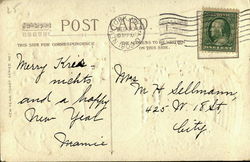 POST CARD
THIS SIDE FOR CORRESPONDENCE.
ON THIS SIDE.
Merry Kris-
nichts
and a happy
New Year
Mamie
Mrs
M H Sellmann,
425 W. 18 St,
City.